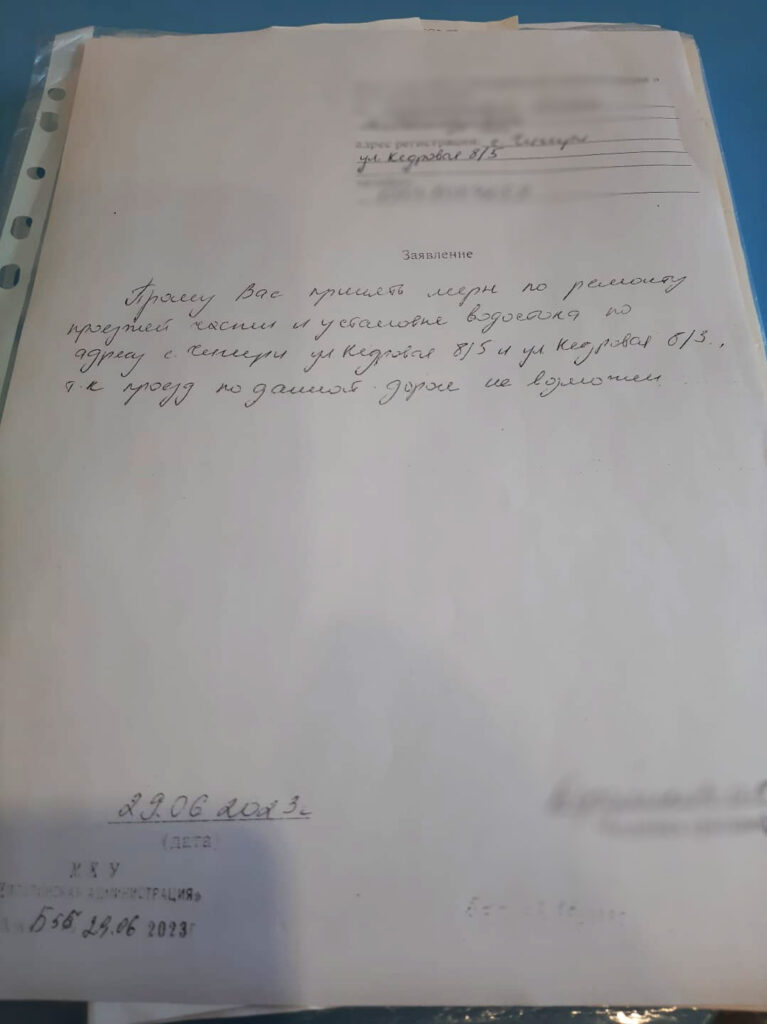 адрес регистрации с. Чигири
ул Кедровая 8/5
Заявление
Прошу Вас принять меры по ремонту
проезжей части и установке водостока по
адресу с. Чигири ул Кедровая 8/5 и ул Кедровая 6/3.,
т.к проезд по данной дороге не возможен
29.06 2023г
(дата)
МКУ
АДМИНИСТРАЦИЯ»
29.06 2023г